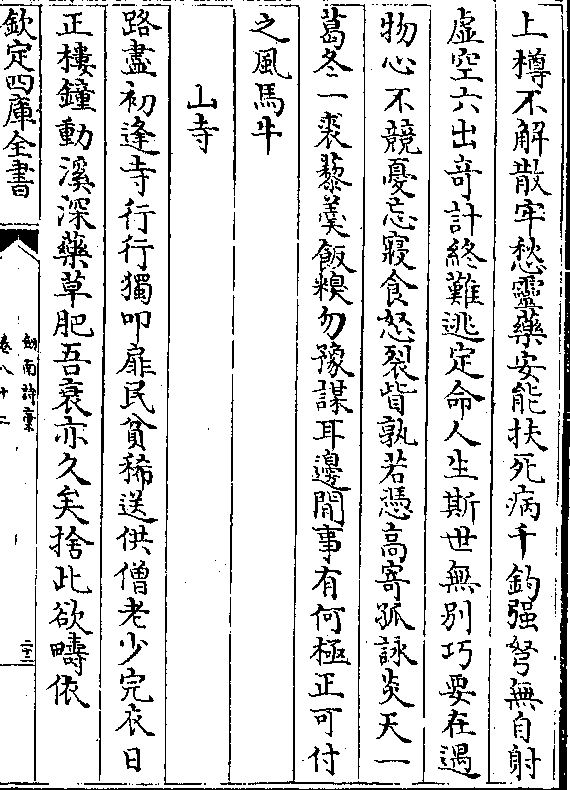 上樽不解散牢愁靈藥安能扶死病千鈞强弩無自射
虚空六出奇計終難逃定命人生斯世無别巧要在遇
物心不競憂忘寢食怒裂眥孰若憑高寄孤詠炎天一
葛冬一裘藜羮飯糗勿豫謀耳邊閒事有何極正可付
之風馬牛
山寺
路盡初逢寺行行獨叩扉民貧稀送供僧老少完衣日
正樓鐘動溪深藥草肥吾衰亦久矣捨此欲疇依
欽定四庫全書
劍南詩藁
卷八十二
二十三